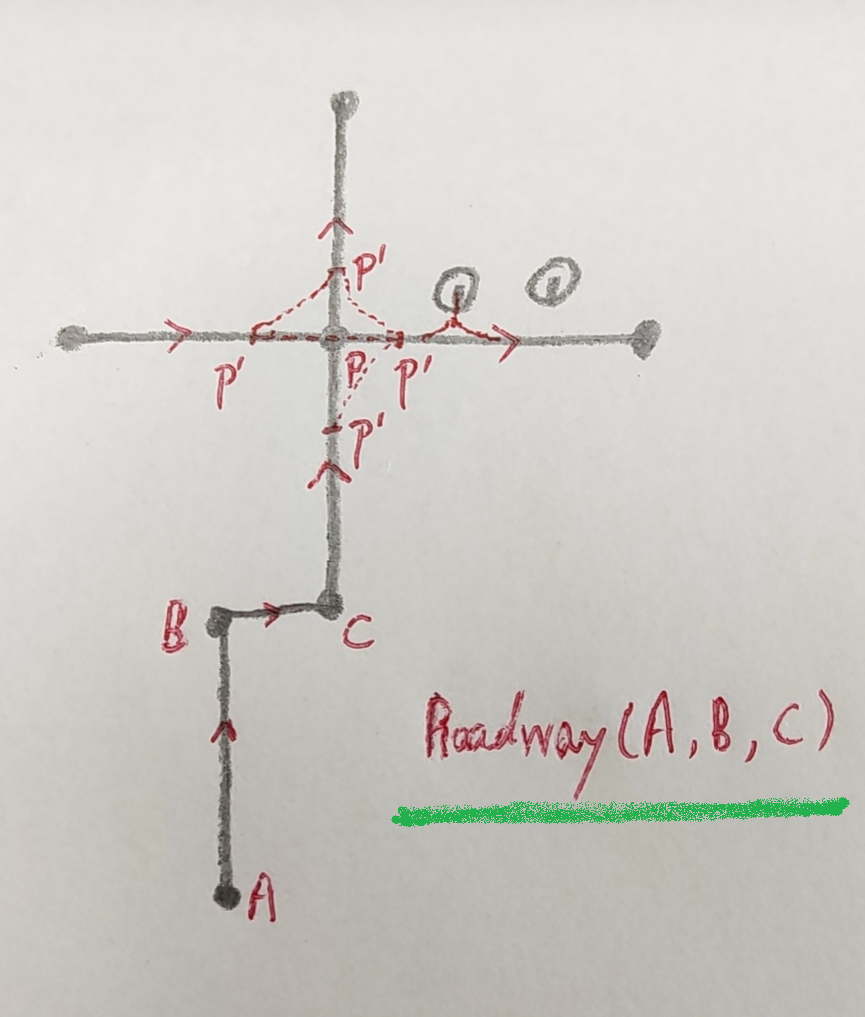 P'
P' P P'
P'
B C
Roadway(A, B, C)
A